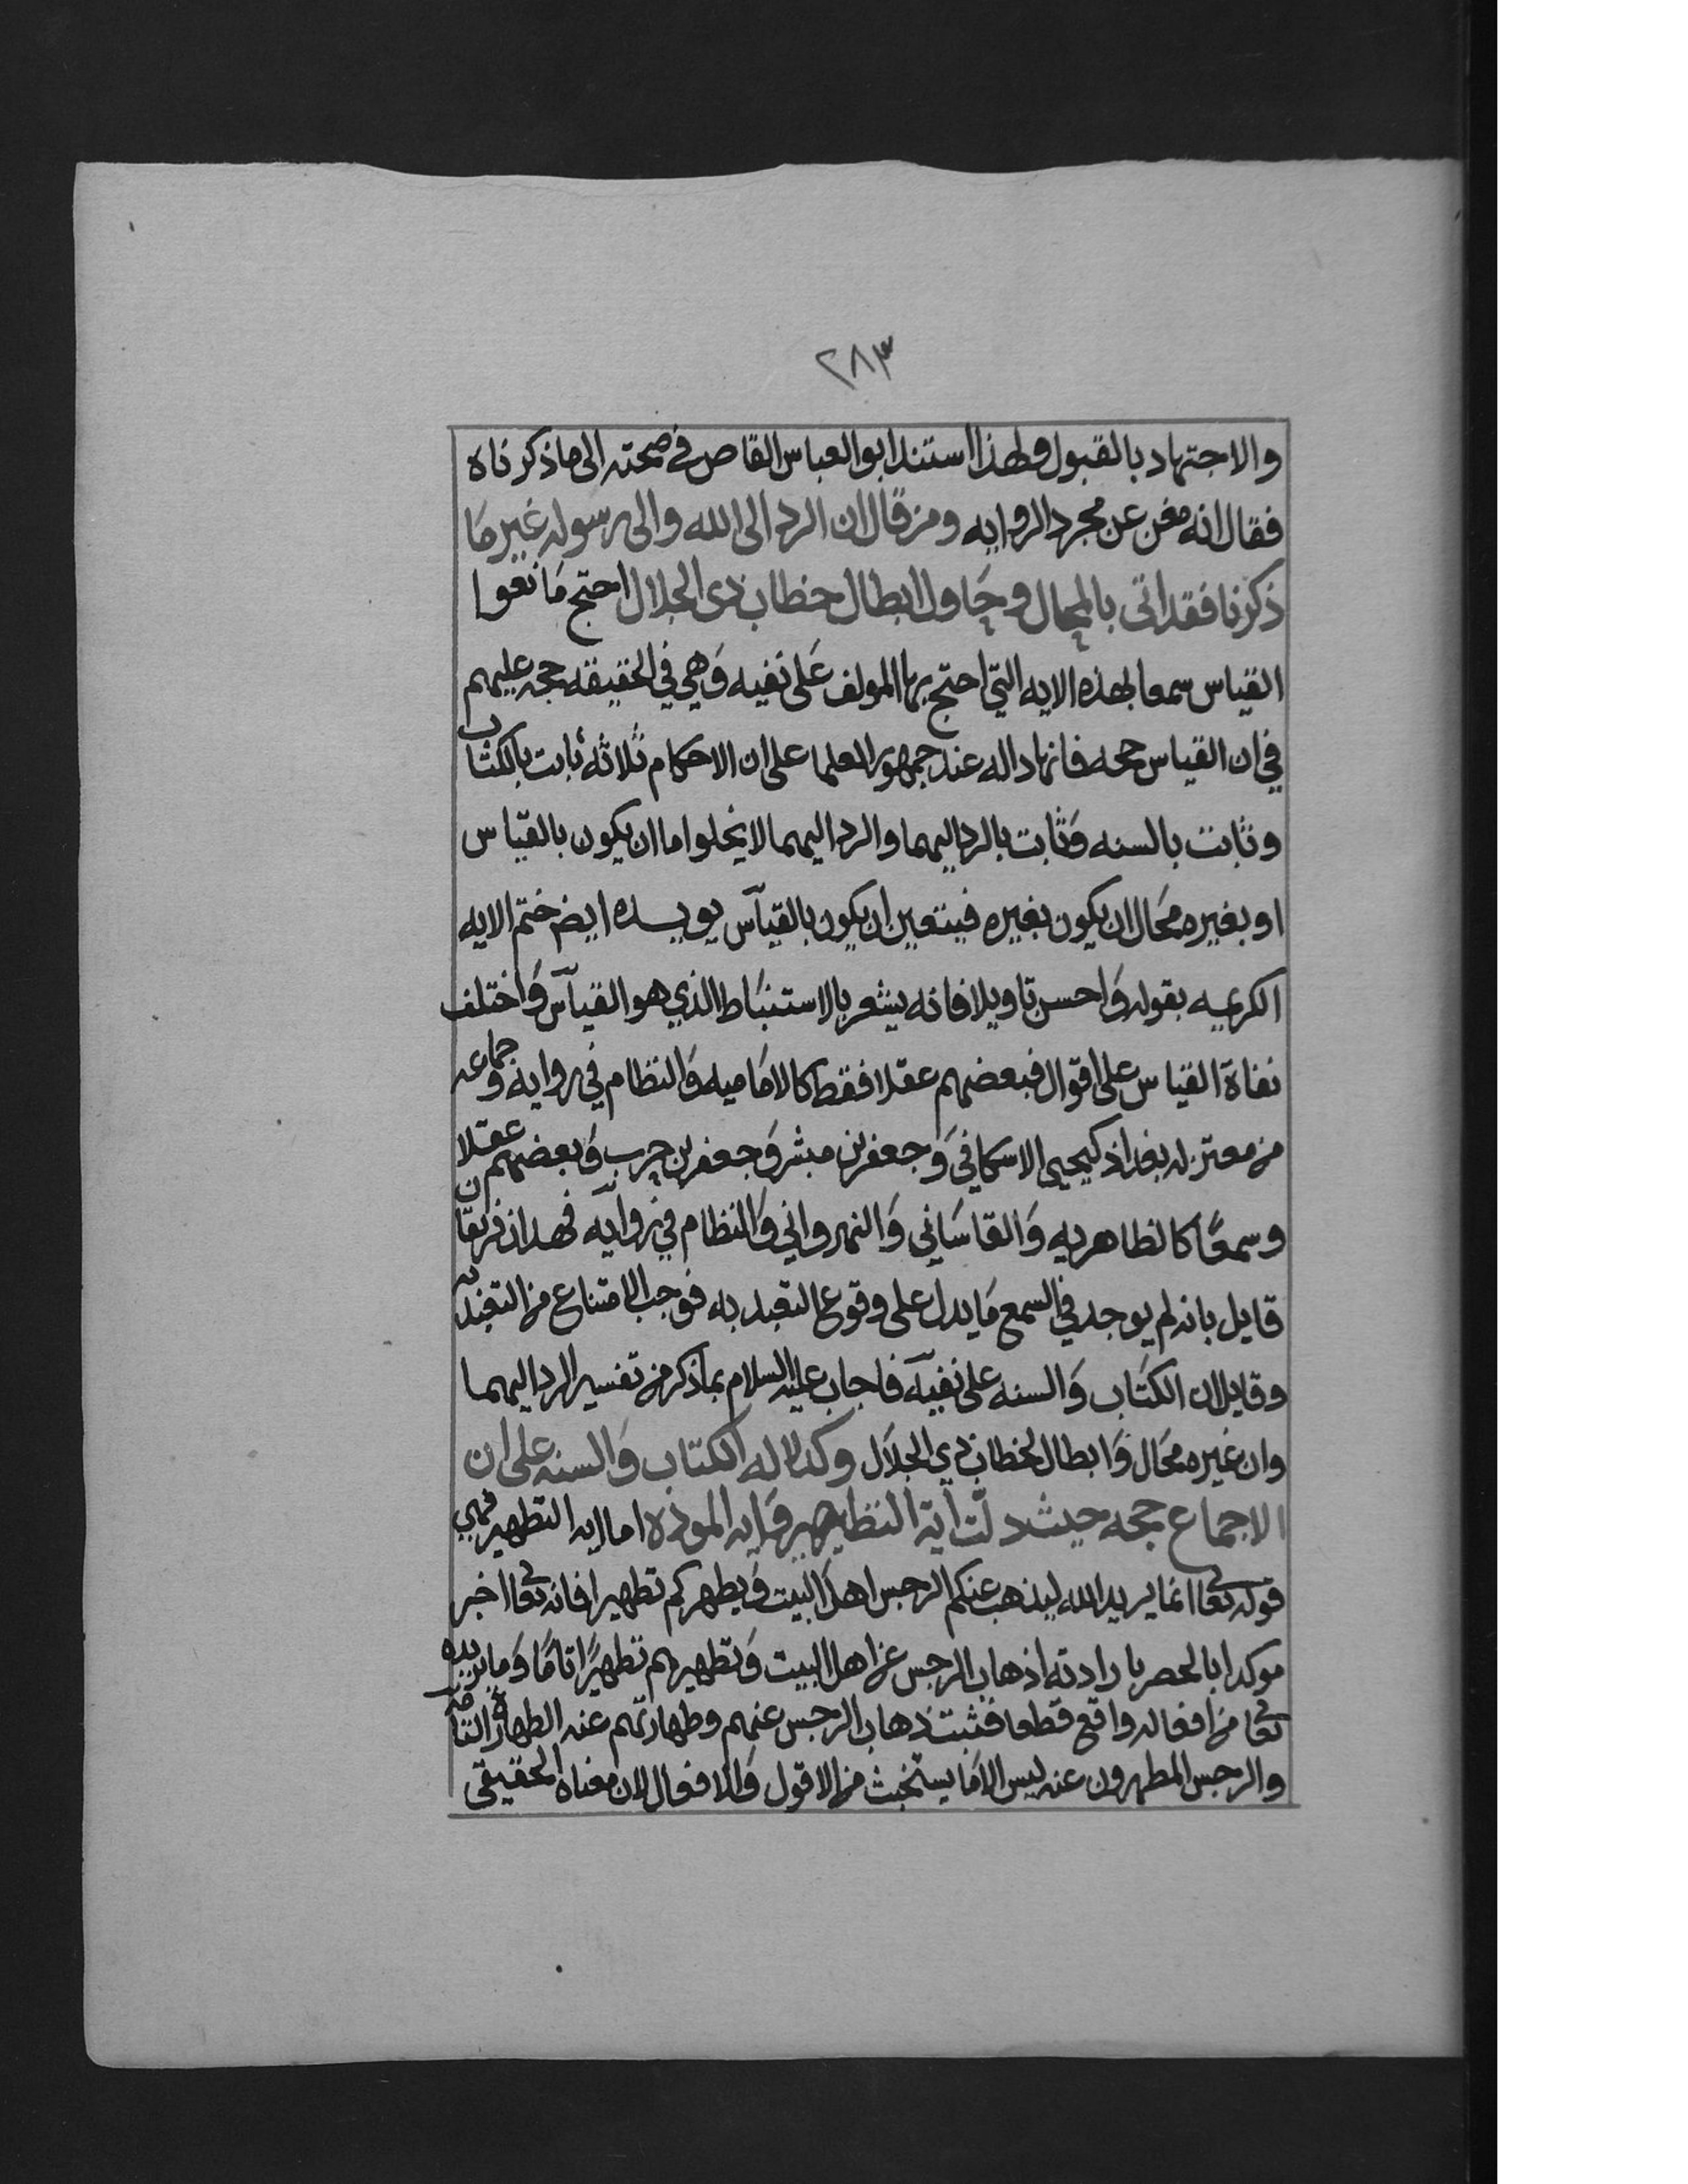 ٢٨٣
والاجتهاد بالقبول ولهذا استند ابو العباس القاص في صحته الى ما ذكرناه
فقال انه مغن عن مجرد الروايه ومن قال ان الرد الى الله والى رسوله غير ما
ذكرنا فقد اتى بالمحال وحاول ابطال خطاب ذى الجلال احتج مانعوا
القياس سمعا بهذه الايه التي احتج بها المولف على نفيه وهي في الحقيقه حجه عليهم
في ان القياس حجه فانها داله عند جمهور العلما على ان الاحكام ثلاثه ثابت بالكتاب
وثابت بالسنه وثابت بالرد اليهما والرد اليهما لا يخلوا اما ان يكون بالقياس
او بغيره محال ان يكون بغيره فيتعين ان يكون بالقياس يويده ايض ختم الايه
الكريميه بقوله واحسن تاويلا فانه يشعر بالاستنباط الذي هو القياس واختلف
نفاة القياس على اقوال فبعضهم عقلا فقط كالاماميه والنظام في روايه وجماعه
من معتزله بغداذ كيحيى الاسكافي وجعفر بن مبشر وجعفر بن حرب وبعضهم عقلا
وسمعا كالظاهريه والقاساني والنهرواني والنظام في روايه فهذان فريقان
قايل بانه لم يوجد في السمع ما يدل على وقوع التعبد به فوجب الامتناع من التعبد به
وقايل ان الكتاب والسنه على نفيه فاجاب عليه السلام بما ذكر من تفسير الرد اليهما
وان غيره محال وابطال لخطاب ذي الجلال وكدلاله الكتاب والسنه على ان
الاجماع حجه حيث دلت اية التطهير وايه الموده اما ايه التطهير فهي
قوله تعا انما يريد الله ليذهب عنكم الرجس اهل البيت ويطهركم تطهيرا فانه تعا اخبر
موكدا بالحصر بارادته اذهاب الرجس عن اهل البيت وتطهيرهم تطهيرًا تامًا وما يريده
تعا من افعاله واقع قطعا فثبت ذهاب الرجس عنهم وطهارتهم عنه الطهارة التامه
والرجس المطهرون عنه ليس الا ما يستخبث من الاقول والافعال لان معناه الحقيقي